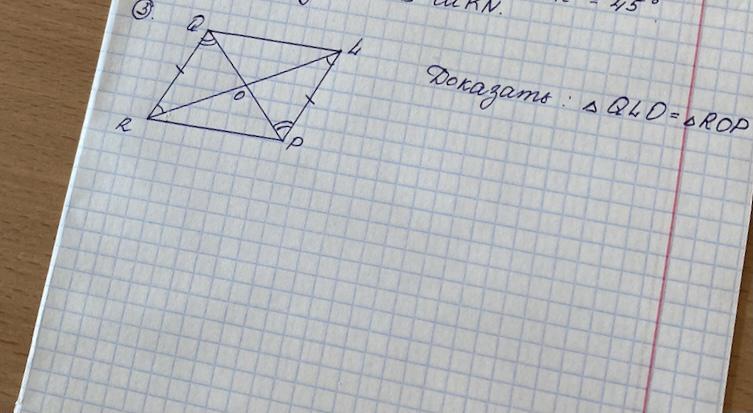 3.
= 45°.
Q
L
O
R
P
Доказать: △QLO = △ROP